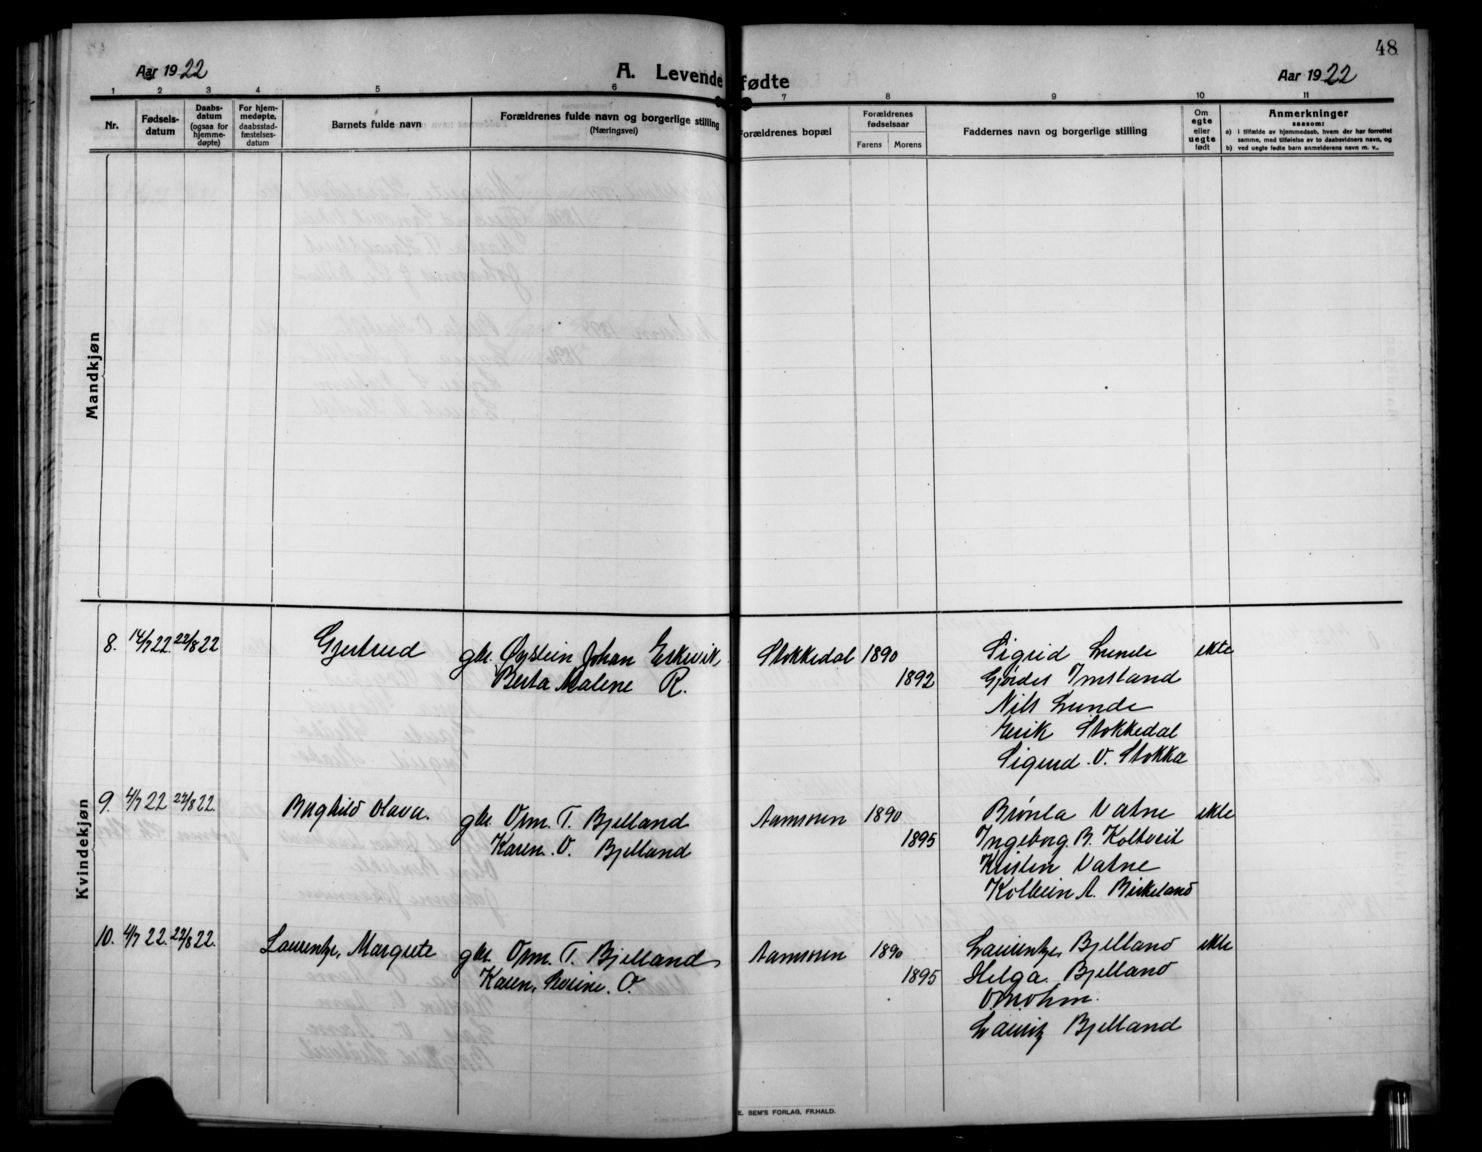 48
Aar 1922
A. Levende fødte
Aar 1922
1 2 3 4 5 6 7 8 9 10 11
Nr.
Fødsels-
datum
Daabs-
datum
(ogsaa for
hjemme-
døpte)
For hjem-
medøpte,
daabsstad-
fæstelses-
datum
Barnets fulde navn
Forældrenes fulde navn og borgerlige stilling
(Næringsvei)
Forældrenes bopæl
Forældrenes
fødselsaar
Farens Morens
Faddernes navn og borgerlige stilling
Om
egte
eller
uegte
født
Anmerkninger
saasom:
a) i tilfælde av hjemmedaab, hvem der har forrettet
samme, med tilføielse av to daabsvidners navn, og
b) ved uegte fødte barn anmelderens navn m. v..
Mandkjøn
Kvindekjøn
8. 14/7 22. 22/8 22 Gjertrud gbr. Øystein Johan Erkevik, Stokkedal 1890 Sigrid Lunde ekte
Berta Malene R. 1892 Gjørdis Imsland
Nils Lunde
Erik Stokkedal
Sigurd. V. Stokka
9. 4/7 22 22/8 22. Borghild Olava. gbr. Orm. T. Bjelland Aamsosen 1890 Vatne ekte
Karen. O. Bjelland 1895 Ingeborg. B. Koltveit
Kristen Vatne
Kolbein A. Birkeland
10. 4/7 22. 22/8 22. Laurentze, Margrete gbr. Orm. T. Bjelland Aamsosen 1890 Laurentze, Bjelland ekte
Karen, Severine. O. 1895 Helga. Bjelland
Lauritz Bjelland
E. SEM'S FORLAG, FR.HALD.